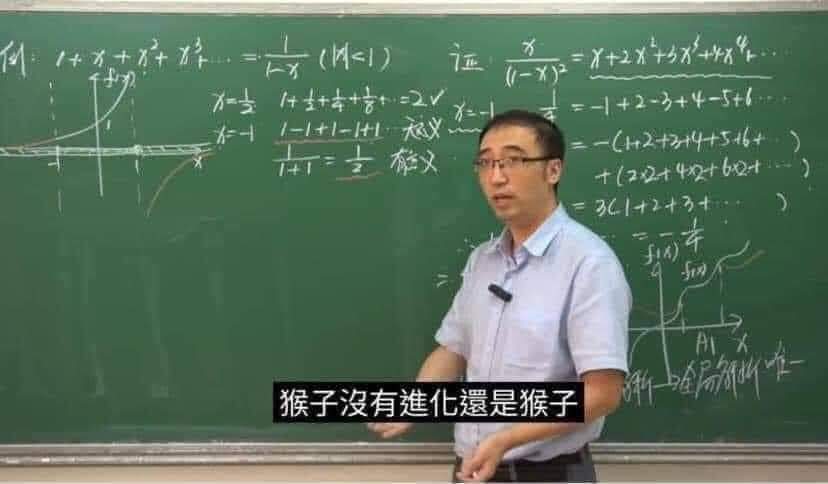 例: 1+x+x²+x³+⋯=1/(1-x) (|x|<1)
f(x)
1
-1
1
x
x=1/2 1+1/2+1/4+1/8+⋯=2✓
x=-1 1-1+1-1+1⋯ 无意义
1/(1+1)=1/2 有意义
证: x/(1-x)²=x+2x²+3x³+4x⁴+⋯
x=-1 -1/4=-1+2-3+4-5+6⋯
=-(1+2+3+4+5+6+⋯)
+(2×2+4×2+6×2+⋯)
=3(1+2+3+⋯ )
=-1/4
f(x)
f(x)
A1
x
解析→全局解析 唯一
猴子沒有進化還是猴子